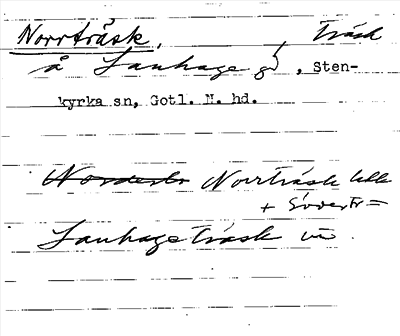 Norrträsk, träsk
å Lauhage gd, Sten-
kyrka sn, Gotl. N. hd.
Norrträsk lille
+ Södertr =
Lauhage träsk